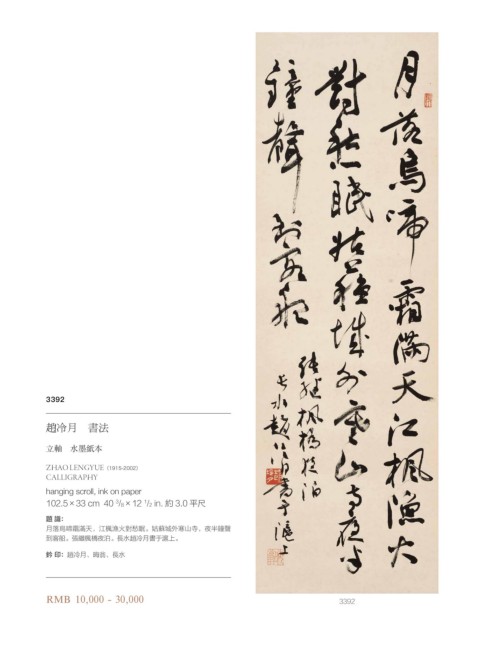 3392
趙冷月 書法
立軸 水墨紙本
ZHAO LENGYUE (1915-2002)
CALLIGRAPHY
hanging scroll, ink on paper
102.5×33 cm 40 3/8×12 1/2 in. 約 3.0 平尺
題識：
月落烏啼霜滿天，江楓漁火對愁眠。姑蘇城外寒山寺，夜半鐘聲
到客船。張繼楓橋夜泊。長水趙冷月書于滬上。
鈐印：趙冷月、長水
RMB 10,000 - 30,000
月落烏啼霜滿天江楓漁火
對愁眠姑蘇城外寒山寺夜半
鐘聲到客船
張繼楓橋夜泊
長水趙冷月書于滬上
3392